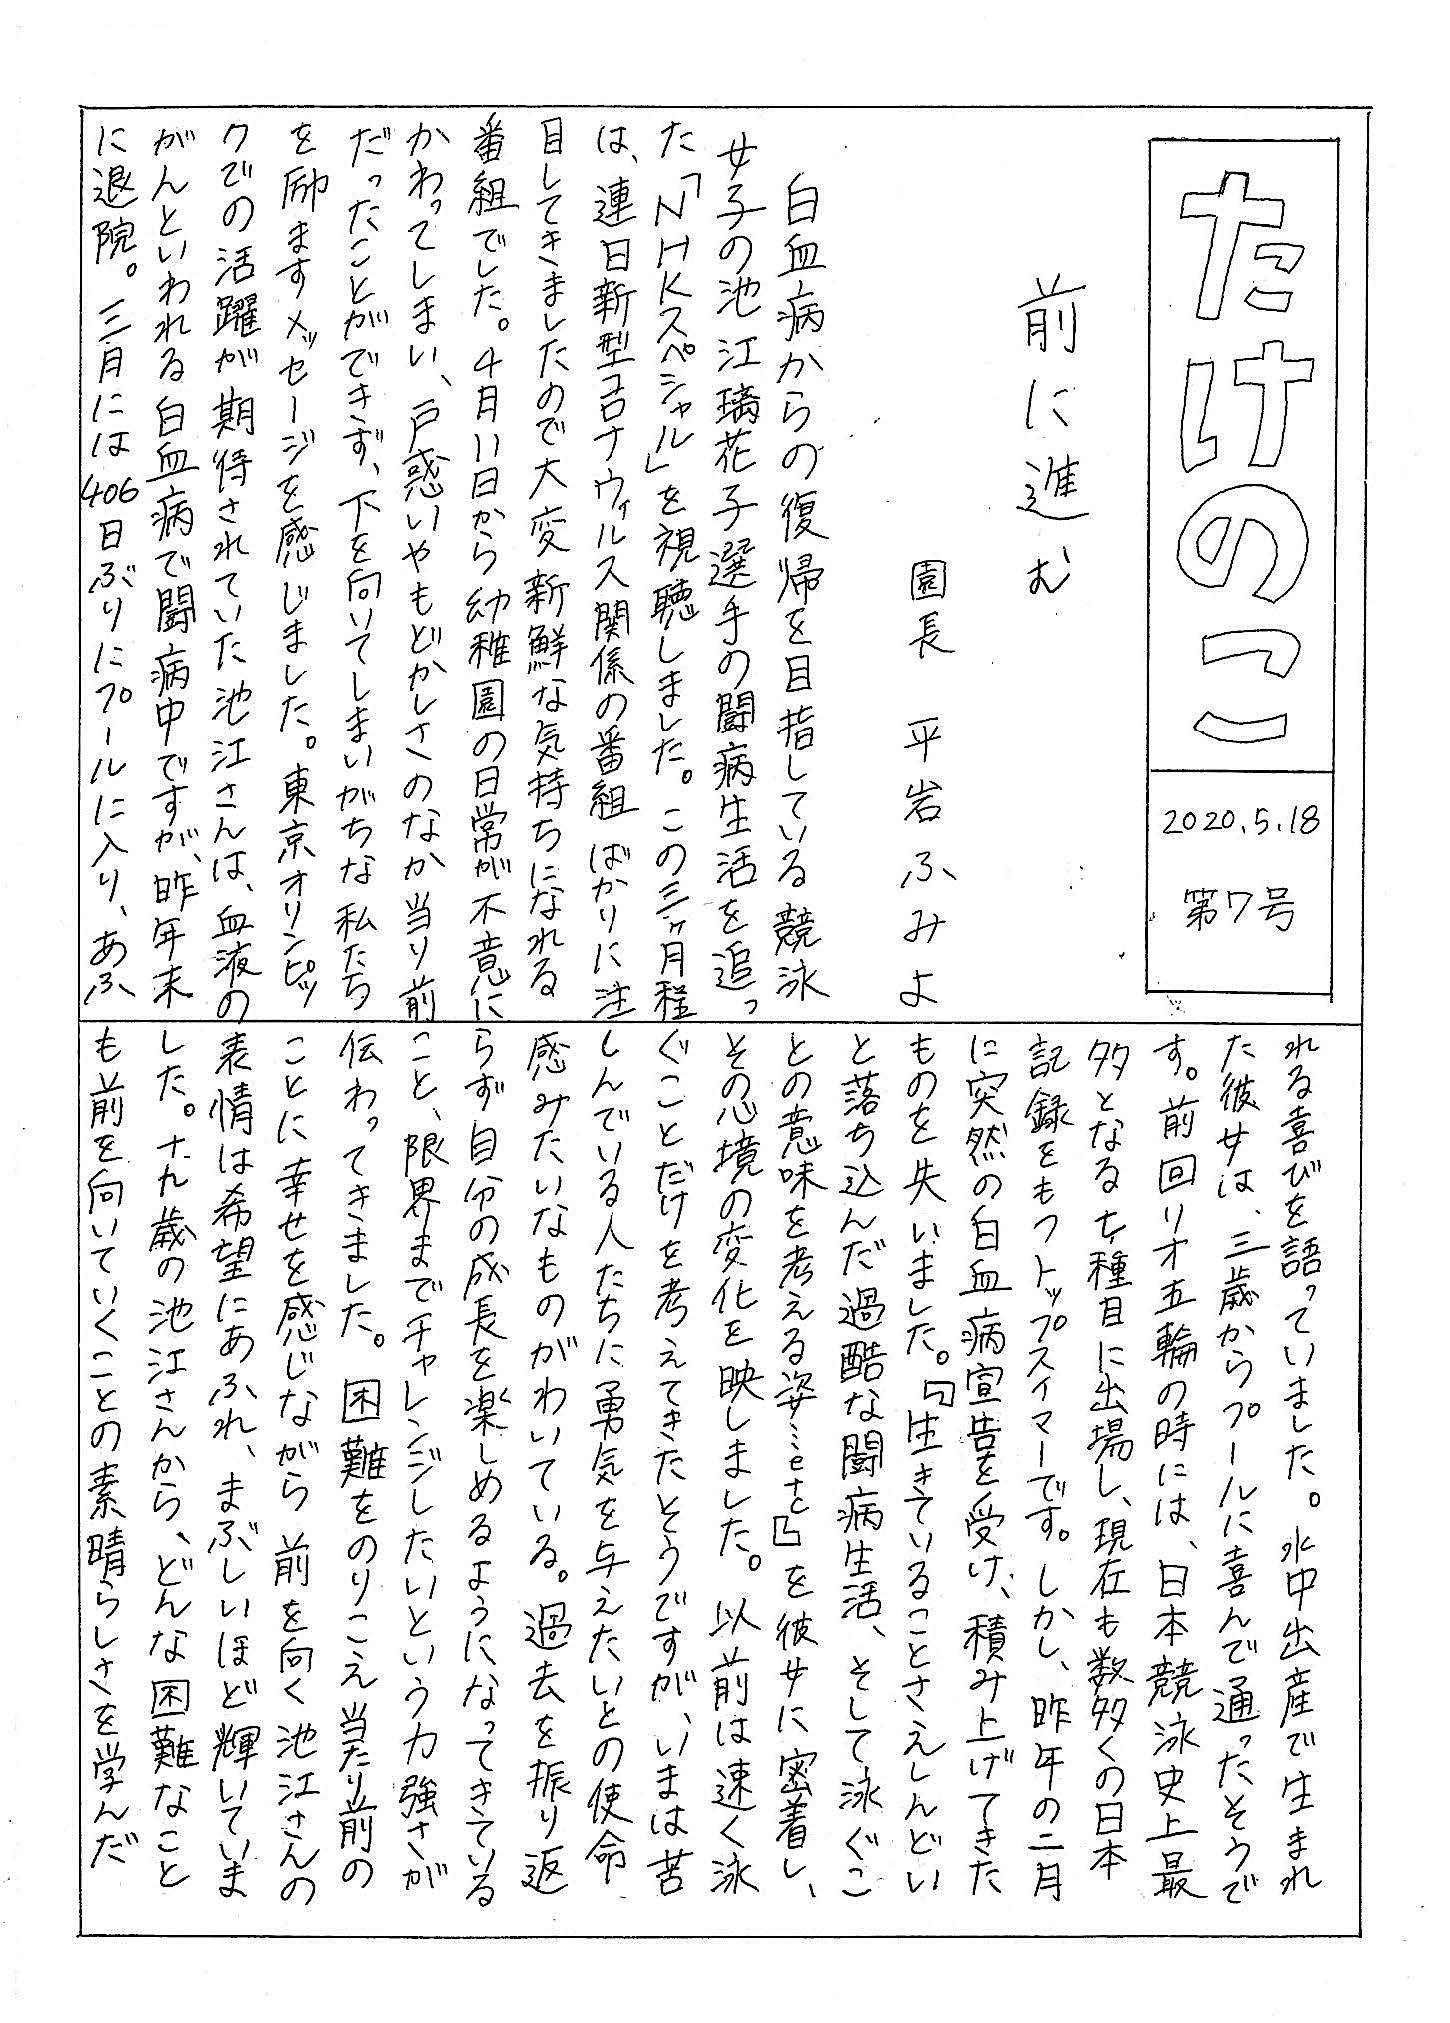 たけのこ
2020.5.18
第7号
前に進む
園長　平岩ふみよ
白血病からの復帰を目指している競泳
女子の池江璃花子選手の闘病生活を追っ
た「NHKスペシャル」を視聴しました。この三ヶ月程
は、連日新型コロナウィルス関係の番組ばかりに注
目してきましたので大変新鮮な気持ちになれる
番組でした。4月11日から幼稚園の日常が不意に
かわってしまい、戸惑いやもどかしさのなか当り前
だったことができず、下を向いてしまいがちな私たち
を励ますメッセージを感じました。東京オリンピッ
クでの活躍が期待されていた池江さんは、血液の
がんといわれる白血病で闘病中ですが、昨年末
に退院。三月には406日ぶりにプールに入り、あふ
れる喜びを語っていました。水中出産で生まれ
た彼女は、三歳からプールに喜んで通ったそうで
す。前回リオ五輪の時には、日本競泳史上最
多となる七種目に出場し、現在も数多くの日本
記録をもつトップスイマーです。しかし、昨年の二月
に突然の白血病宣告を受け、積み上げてきた
ものを失いました。『生きていることさえしんどい
と落ち込んだ過酷な闘病生活、そして泳ぐこ
との意味を考える姿…etc』を彼女に密着し、
その心境の変化を映しました。以前は速く泳
ぐことだけを考えてきたそうですが、いまは苦
しんでいる人たちに勇気を与えたいとの使命
感みたいなものがわいている。過去を振り返
らず自分の成長を楽しめるようになってきている
こと、限界までチャレンジしたいという力強さが
伝わってきました。困難をのりこえ当たり前の
ことに幸せを感じながら前を向く池江さんの
表情は希望にあふれ、まぶしいほど輝いていま
した。十九歳の池江さんから、どんな困難なこと
も前を向いていくことの素晴らしさを学んだ